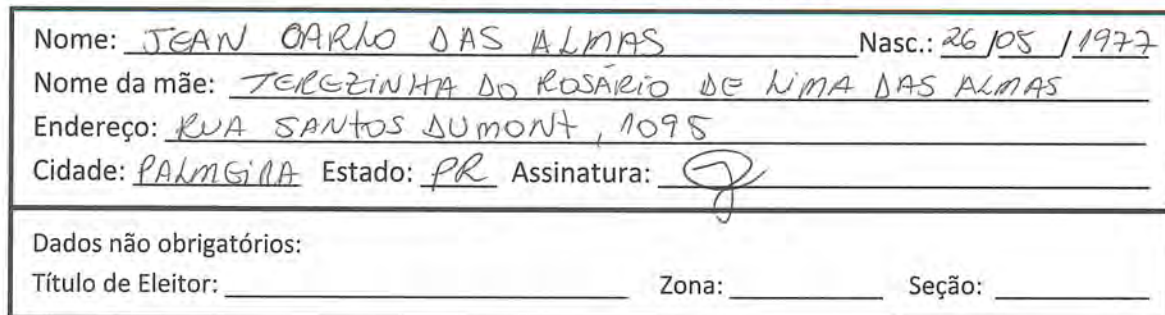 Nome: JEAN CARLO DAS ALMAS Nasc.: 26/05/1977
Nome da mãe: TEREZINHA DO ROSÁRIO DE LIMA DAS ALMAS
Endereço: RUA SANTOS DUMONT, 1095
Cidade: PALMEIRA Estado: PR Assinatura:
Dados não obrigatórios:
Título de Eleitor: Zona: Seção: